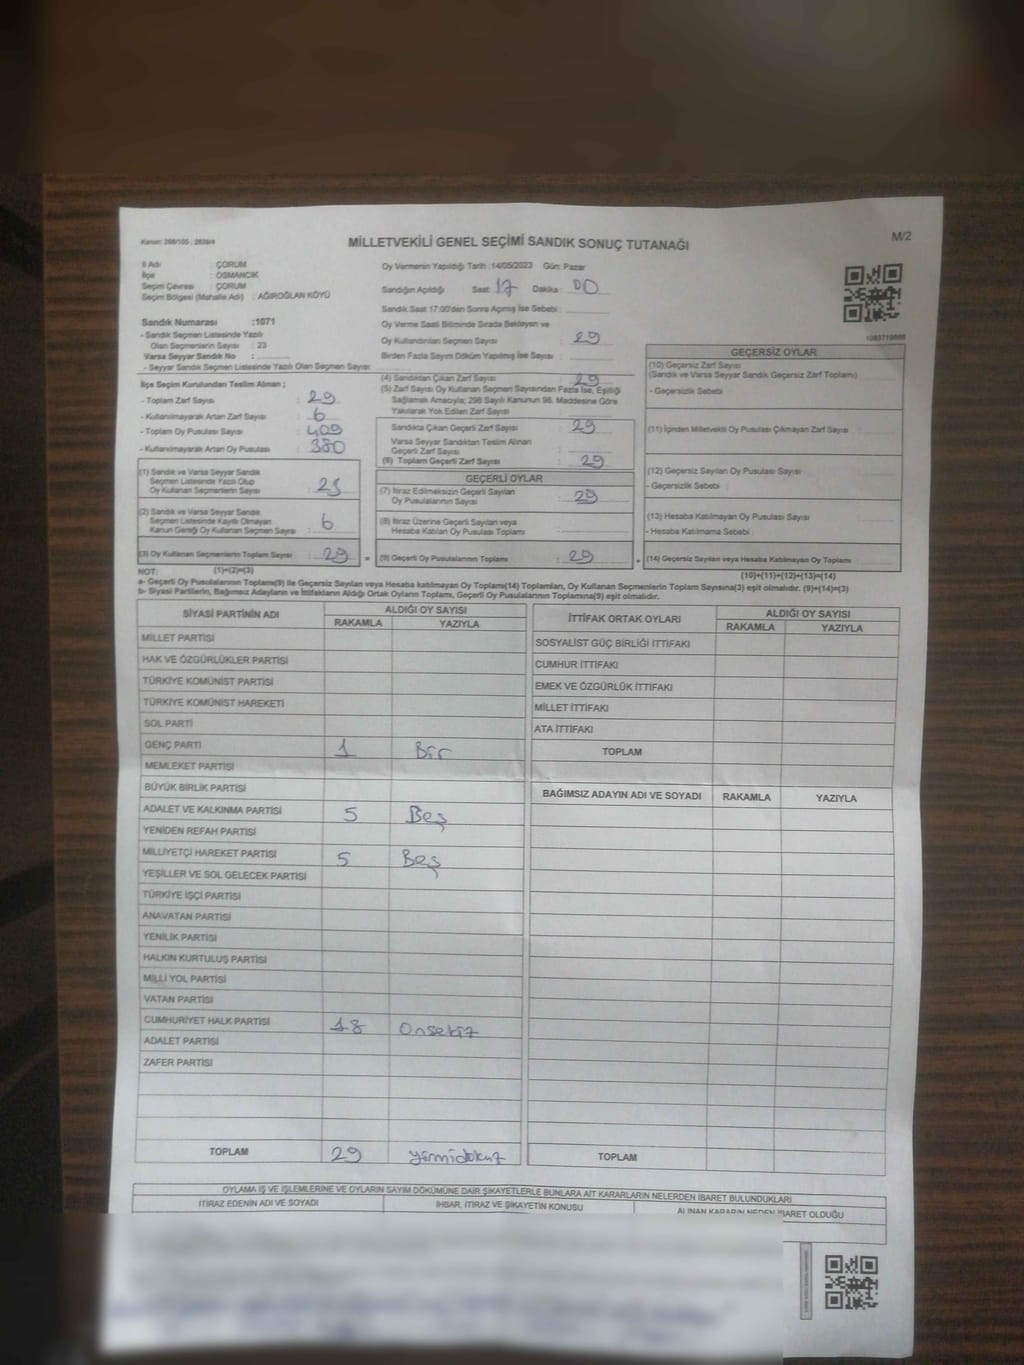 Kanun: 298/105 ; 2839/4
MİLLETVEKİLİ GENEL SEÇİMİ SANDIK SONUÇ TUTANAĞI
M/2
İl Adı : ÇORUM
İlçe : OSMANCIK
Seçim Çevresi : ÇORUM
Seçim Bölgesi (Mahalle Adı) : AĞIROĞLAN KÖYÜ
Sandık Numarası :1071
- Sandık Seçmen Listesinde Yazılı
Olan Seçmenlerin Sayısı : 23
Varsa Seyyar Sandık No :
- Seyyar Sandık Seçmen Listesinde Yazılı Olan Seçmen Sayısı:
Oy Vermenin Yapıldığı Tarih :14/05/2023 Gün: Pazar
Sandığın Açıldığı Saat: 17 Dakika: 00
Sandık Saat 17:00'den Sonra Açılmış İse Sebebi :
Oy Verme Saati Bitiminde Sırada Bekleyen ve
Oy Kullandırılan Seçmen Sayısı : 29
Birden Fazla Sayım Döküm Yapılmış İse Sayısı :
İlçe Seçim Kurulundan Teslim Alınan ;
- Toplam Zarf Sayısı : 29
- Kullanılmayarak Artan Zarf Sayısı : 6
- Toplam Oy Pusulası Sayısı : 409
- Kullanılmayarak Artan Oy Pusulası : 380
(1) Sandık ve Varsa Seyyar Sandık
Seçmen Listesinde Yazılı Olup
Oy Kullanan Seçmenlerin Sayısı : 23
(2) Sandık ve Varsa Seyyar Sandık
Seçmen Listesinde Kayıtlı Olmayan
Kanun Gereği Oy Kullanan Seçmen Sayısı : 6
(3) Oy Kullanan Seçmenlerin Toplam Sayısı : 29 =
(4) Sandıktan Çıkan Zarf Sayısı : 29
(5) Zarf Sayısı Oy Kullanan Seçmen Sayısından Fazla İse, Eşitliği
Sağlamak Amacıyla; 298 Sayılı Kanunun 98. Maddesine Göre
Yakılarak Yok Edilen Zarf Sayısı :
Sandıkta Çıkan Geçerli Zarf Sayısı : 29
Varsa Seyyar Sandıktan Teslim Alınan
Geçerli Zarf Sayısı :
(6) Toplam Geçerli Zarf Sayısı : 29
GEÇERLİ OYLAR
(7) İtiraz Edilmeksizin Geçerli Sayılan
Oy Pusulalarının Sayısı : 29
(8) İtiraz Üzerine Geçerli Sayılan veya
Hesaba Katılan Oy Pusulası Toplamı :
(9) Geçerli Oy Pusulalarının Toplamı : 29 +
1083719666
GEÇERSİZ OYLAR
(10) Geçersiz Zarf Sayısı
(Sandık ve Varsa Seyyar Sandık Geçersiz Zarf Toplamı) :
- Geçersizlik Sebebi :
(11) İçinden Milletvekili Oy Pusulası Çıkmayan Zarf Sayısı :
(12) Geçersiz Sayılan Oy Pusulası Sayısı :
- Geçersizlik Sebebi :
(13) Hesaba Katılmayan Oy Pusulası Sayısı :
- Hesaba Katılmama Sebebi :
(14) Geçersiz Sayılan veya Hesaba Katılmayan Oy Toplamı :
NOT: (1)+(2)=(3)
(10)+(11)+(12)+(13)=(14)
a- Geçerli Oy Pusulalarının Toplamı(9) ile Geçersiz Sayılan veya Hesaba katılmayan Oy Toplamı(14) Toplamları, Oy Kullanan Seçmenlerin Toplam Sayısına(3) eşit olmalıdır. (9)+(14)=(3)
b- Siyasi Partilerin, Bağımsız Adayların ve İttifakların Aldığı Ortak Oyların Toplamı, Geçerli Oy Pusulalarının Toplamına(9) eşit olmalıdır.
SİYASİ PARTİNİN ADI ALDIĞI OY SAYISI
RAKAMLA YAZIYLA
MİLLET PARTİSİ
HAK VE ÖZGÜRLÜKLER PARTİSİ
TÜRKİYE KOMÜNİST PARTİSİ
TÜRKİYE KOMÜNİST HAREKETİ
SOL PARTİ
GENÇ PARTİ 1 Bir
MEMLEKET PARTİSİ
BÜYÜK BİRLİK PARTİSİ
ADALET VE KALKINMA PARTİSİ 5 Beş
YENİDEN REFAH PARTİSİ
MİLLİYETÇİ HAREKET PARTİSİ 5 Beş
YEŞİLLER VE SOL GELECEK PARTİSİ
TÜRKİYE İŞÇİ PARTİSİ
ANAVATAN PARTİSİ
YENİLİK PARTİSİ
HALKIN KURTULUŞ PARTİSİ
MİLLİ YOL PARTİSİ
VATAN PARTİSİ
CUMHURİYET HALK PARTİSİ 18 Onsekiz
ADALET PARTİSİ
ZAFER PARTİSİ
TOPLAM 29 yirmidokuz
İTTİFAK ORTAK OYLARI ALDIĞI OY SAYISI
RAKAMLA YAZIYLA
SOSYALİST GÜÇ BİRLİĞİ İTTİFAKI
CUMHUR İTTİFAKI
EMEK VE ÖZGÜRLÜK İTTİFAKI
MİLLET İTTİFAKI
ATA İTTİFAKI
TOPLAM
BAĞIMSIZ ADAYIN ADI VE SOYADI RAKAMLA YAZIYLA
TOPLAM
OYLAMA İŞ VE İŞLEMLERİNE VE OYLARIN SAYIM DÖKÜMÜNE DAİR ŞİKAYETLERLE BUNLARA AİT KARARLARIN NELERDEN İBARET BULUNDUKLARI
İTİRAZ EDENİN ADI VE SOYADI İHBAR, İTİRAZ VE ŞİKAYETİN KONUSU ALINAN KARARIN NEDEN İBARET OLDUĞU